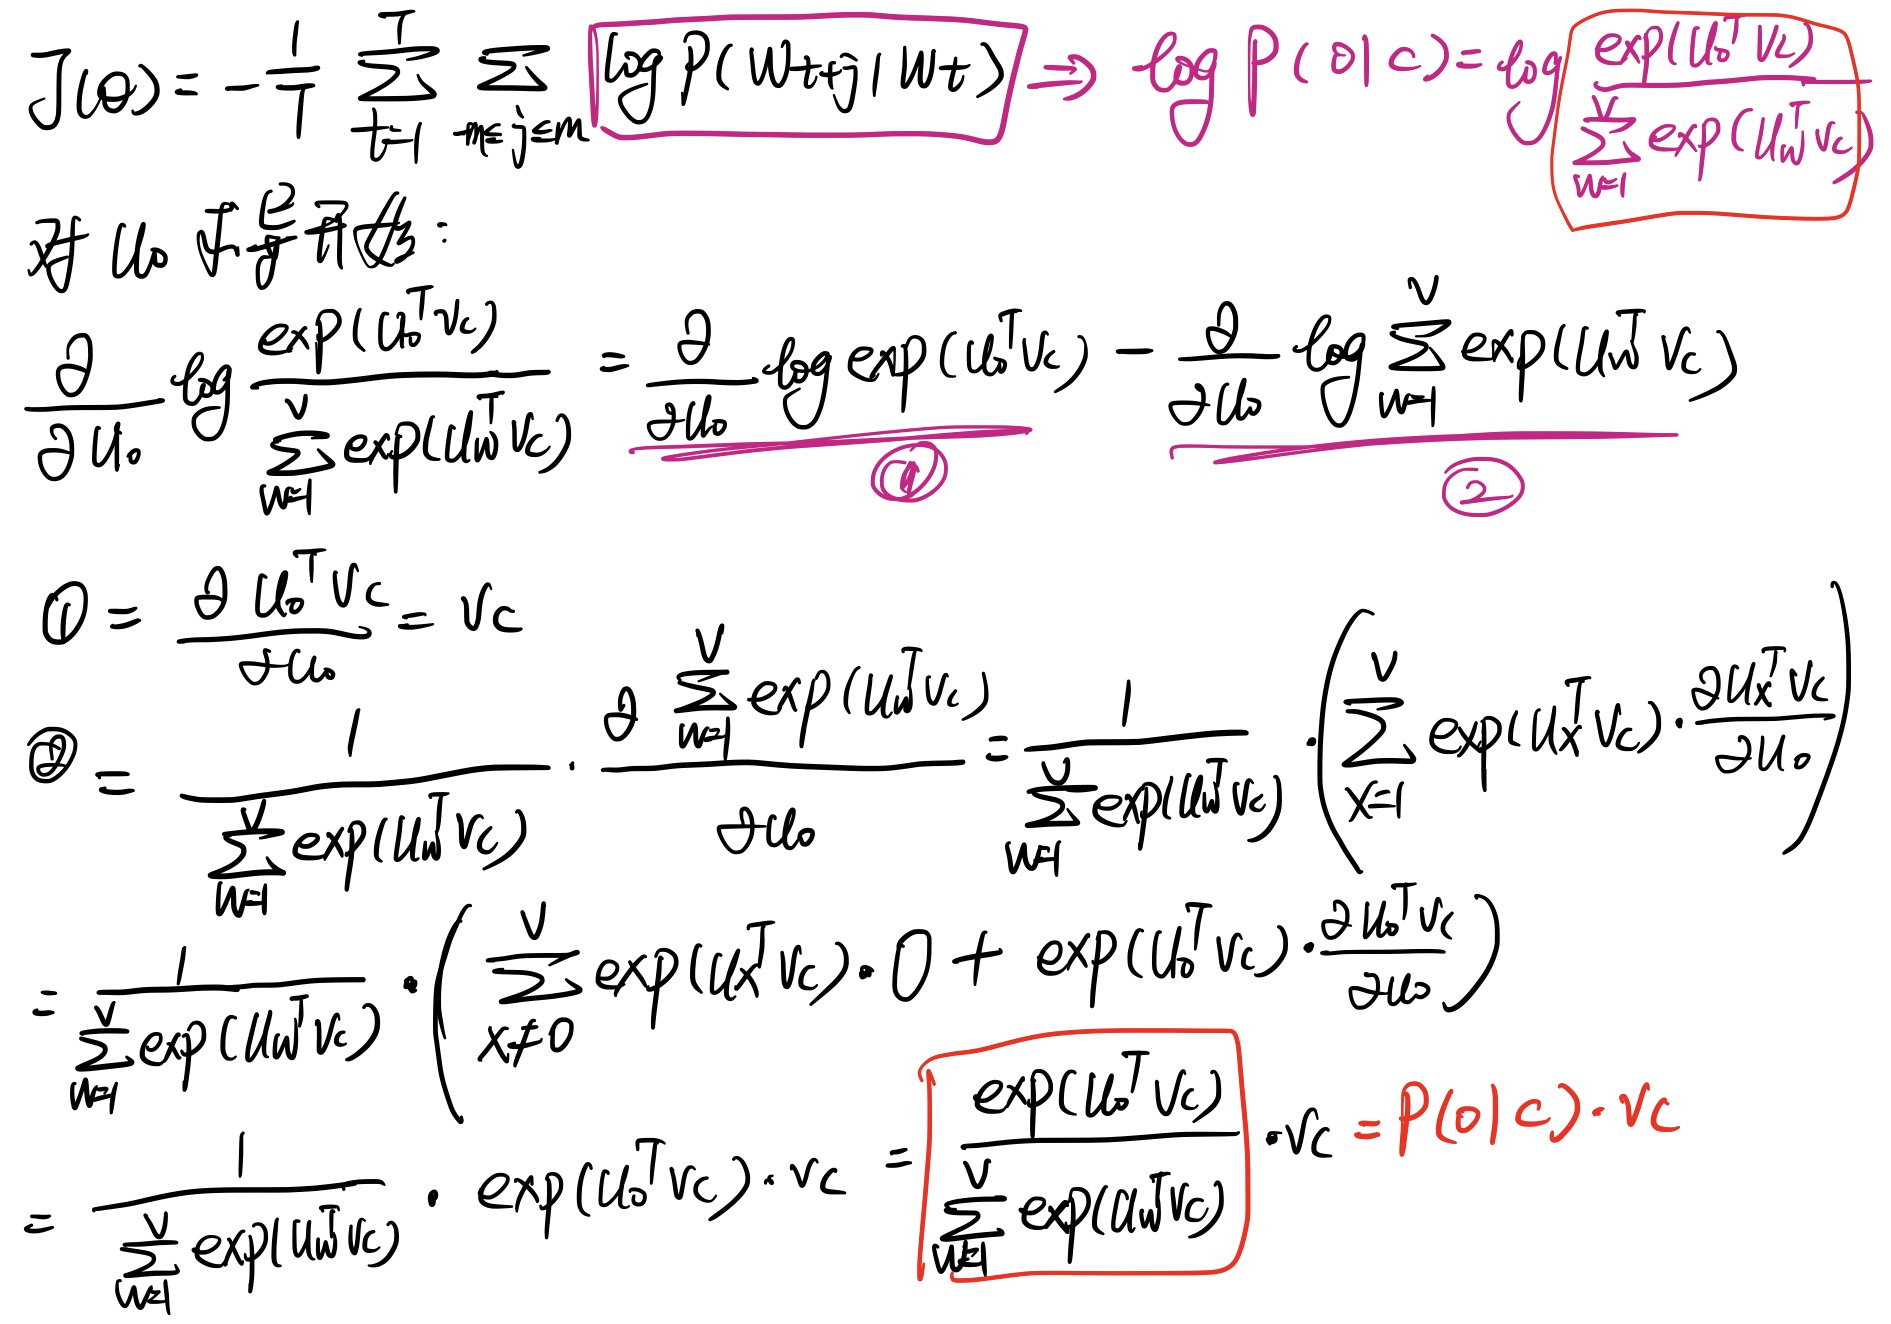 J(θ) = -1/T Σ_{t=1}^{T} Σ_{-m≤j≤m} log P(W_{t+j} | W_t) ⇒ log P(o|c) = log exp(u_o^T v_c) / Σ_{w=1}^{V} exp(u_w^T v_c)
对 u_o 求偏导数:
∂/∂u_o log exp(u_o^T v_c) / Σ_{w=1}^{V} exp(u_w^T v_c) = ∂/∂u_o log exp(u_o^T v_c) - ∂/∂u_o log Σ_{w=1}^{V} exp(u_w^T v_c)
① ②
① = ∂u_o^T v_c / ∂u_o = v_c
② = 1 / Σ_{w=1}^{V} exp(u_w^T v_c) · ∂ Σ_{w=1}^{V} exp(u_w^T v_c) / ∂u_o = 1 / Σ_{w=1}^{V} exp(u_w^T v_c) · ( Σ_{x=1}^{V} exp(u_x^T v_c) · ∂u_x^T v_c / ∂u_o )
= 1 / Σ_{w=1}^{V} exp(u_w^T v_c) · ( Σ_{x≠0}^{V} exp(u_x^T v_c) · 0 + exp(u_o^T v_c) · ∂u_o^T v_c / ∂u_o )
= 1 / Σ_{w=1}^{V} exp(u_w^T v_c) · exp(u_o^T v_c) · v_c = exp(u_o^T v_c) / Σ_{w=1}^{V} exp(u_w^T v_c) · v_c = P(o|c) · v_c